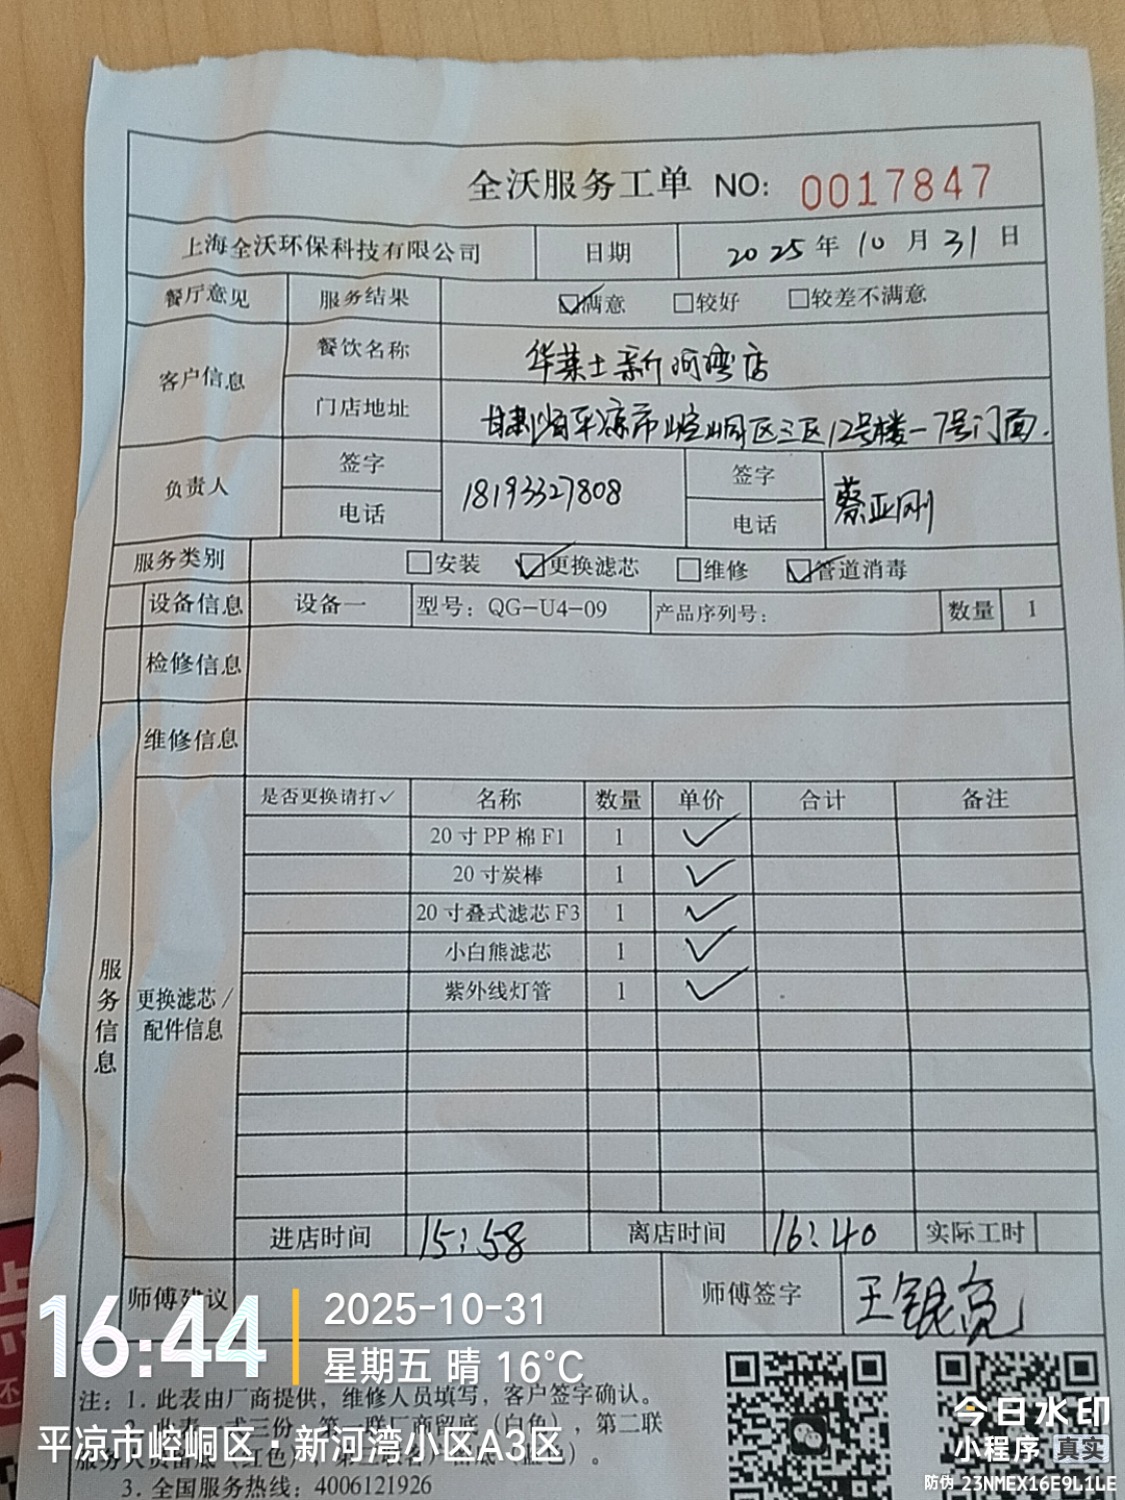 全沃服务工单 NO: 0017847
上海全沃环保科技有限公司 日期 2025年10月31日
餐厅意见 服务结果 ☑满意 □较好 □较差不满意
客户信息 餐饮名称 华莱士新河湾店
门店地址 甘肃省平凉市崆峒区三区12号楼-7号门面.
负责人 签字 电话 18193327808 签字 电话 蔡亚刚
服务类别 □安装 ☑更换滤芯 □维修 ☑管道消毒
设备信息 设备一 型号: QG-U4-09 产品序列号: 数量 1
检修信息
维修信息
服务信息
更换滤芯/配件信息
是否更换请打✓ 名称 数量 单价 合计 备注
20寸PP棉F1 1 ✓
20寸炭棒 1 ✓
20寸叠式滤芯F3 1 ✓
小白熊滤芯 1 ✓
紫外线灯管 1 ✓
进店时间 15:58 离店时间 16:40 实际工时
师傅建议 师傅签字 王银亮
16:44 2025-10-31
星期五 晴 16°C
注: 1. 此表由厂商提供，维修人员填写，客户签字确认。
2. 此表一式三份，第一联厂商留底（白色），第二联
平凉市崆峒区·新河湾小区A3区
3. 全国服务热线: 4006121926
今日水印
小程序 真实
防伪 23NMEX16E9L1LE